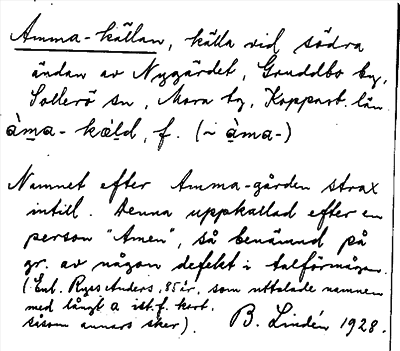 Amma-källan, källa vid södra
ändan av Nygärdet, Gruddbo by,
Sollerö sn, Mora tg, Kopparb. län.
àma-kæld, f. (~ àma-)
Namnet efter Amma-gården strax
intill. Denna uppkallad efter en
person "Amen", så benämnd på
gr. av någon defekt i talförmågan.
(Enl. Ryss Anders, 85 år, som uttalade namnen
med långt a ist. f. kort.
såsom annars sker). B. Lindén 1928.